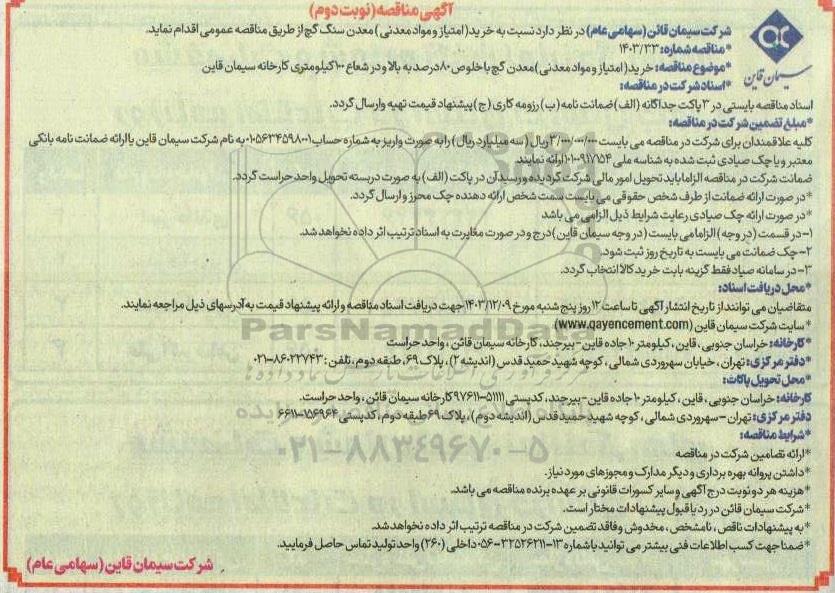 آگهی مناقصه (نوبت دوم)
شرکت سیمان قائن (سهامی عام) در نظر دارد نسبت به خرید (امتیاز و مواد معدنی) معدن سنگ گچ از طریق مناقصه عمومی اقدام نماید.
*مناقصه شماره: ۱۴۰۳/۳۳
*موضوع مناقصه: خرید (امتیاز و مواد معدنی) معدن گچ با خلوص ۸۰ درصد به بالا و در شعاع ۱۰۰ کیلومتری کارخانه سیمان قاین
*اسناد شرکت در مناقصه:
سیمان قاین
اسناد مناقصه بایستی در ۳ پاکت جداگانه (الف) ضمانت نامه (ب) رزومه کاری (ج) پیشنهاد قیمت تهیه وارسال گردد.
*مبلغ تضمین شرکت در مناقصه:
کلیه علاقمندان برای شرکت در مناقصه می بایست ۳/۰۰۰/۰۰۰/۰۰۰ ریال (سه میلیارد ریال) را به صورت واریز به شماره حساب ۰۱۰۵۶۳۴۵۹۸۰۰۱ به نام شرکت سیمان قاین یا ارائه ضمانت نامه بانکی
معتبر و یا چک صیادی ثبت شده به شناسه ملی ۱۰۱۰۰۹۱۷۱۵۴ ارائه نمایند.
ضمانت شرکت در مناقصه الزاما باید تحویل امور مالی شرکت گردیده و رسید آن در پاکت (الف) به صورت دربسته تحویل واحد حراست گردد.
*در صورت ارائه ضمانت از طرف شخص حقوقی می بایست سمت شخص ارائه دهنده چک محرز و ارسال گردد.
*در صورت ارائه چک صیادی رعایت شرایط ذیل الزامی می باشد
۱- در قسمت (در وجه) الزاما می بایست (در وجه سیمان قاین) درج و در صورت مغایرت به اسناد ترتیب اثر داده نخواهد شد.
۲- چک ضمانت می بایست به تاریخ روز ثبت شود.
۳- در سامانه صیاد فقط گزینه بابت خرید کالا انتخاب گردد.
*محل دریافت اسناد:
متقاضیان می توانند از تاریخ انتشار آگهی تا ساعت ۱۲ روز پنج شنبه مورخ ۱۴۰۳/۱۲/۰۹ جهت دریافت اسناد مناقصه و ارائه پیشنهاد قیمت به آدرسهای ذیل مراجعه نمایند.
*سایت شرکت سیمان قاین (www.qayencement.com)
*کارخانه: خراسان جنوبی، قاین، کیلومتر ۱۰ جاده قاین - بیرجند، کارخانه سیمان قائن، واحد حراست
*دفتر مرکزی: تهران، خیابان سهروردی شمالی، کوچه شهید حمید قدس (اندیشه ۲)، پلاک ۶۹، طبقه دوم، تلفن: ۸۶۰۲۲۷۴۳-۰۲۱
*محل تحویل پاکات:
کارخانه: خراسان جنوبی، قاین، کیلومتر ۱۰ جاده قاین - بیرجند، کدپستی ۵۱۱۱۱-۹۷۶۱۱ کارخانه سیمان قائن، واحد حراست.
دفتر مرکزی: تهران - سهروردی شمالی، کوچه شهید حمید قدس (اندیشه دوم)، پلاک ۶۹ طبقه دوم، کدپستی ۱۵۶۹۶۴-۶۶۱۱
*شرایط مناقصه:
*ارائه تضامین شرکت در مناقصه
*داشتن پروانه بهره برداری و دیگر مدارک و مجوزهای مورد نیاز.
*هزینه هر دو نوبت درج آگهی و سایر کسورات قانونی بر عهده برنده مناقصه می باشد.
*شرکت سیمان قائن در رد یا قبول پیشنهادات مختار است.
*به پیشنهادات ناقص، نامشخص، مخدوش و فاقد تضمین شرکت در مناقصه ترتیب اثر داده نخواهد شد.
*ضمنا جهت کسب اطلاعات فنی بیشتر می توانید با شماره ۱۳-۳۲۵۲۶۲۱۱-۰۵۶ داخلی (۲۶۰) واحد تولید تماس حاصل فرمایید.
شرکت سیمان قاین (سهامی عام)
ParsNamadData
۰۲۱-۸۸۳۴۹۶۷۰-۵